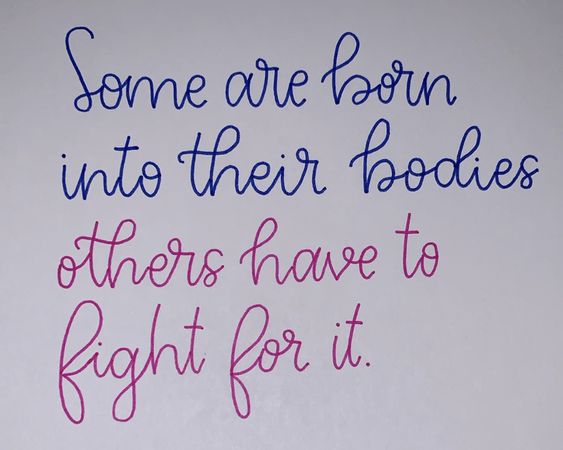 Some are born
into their bodies
others have to
fight for it.